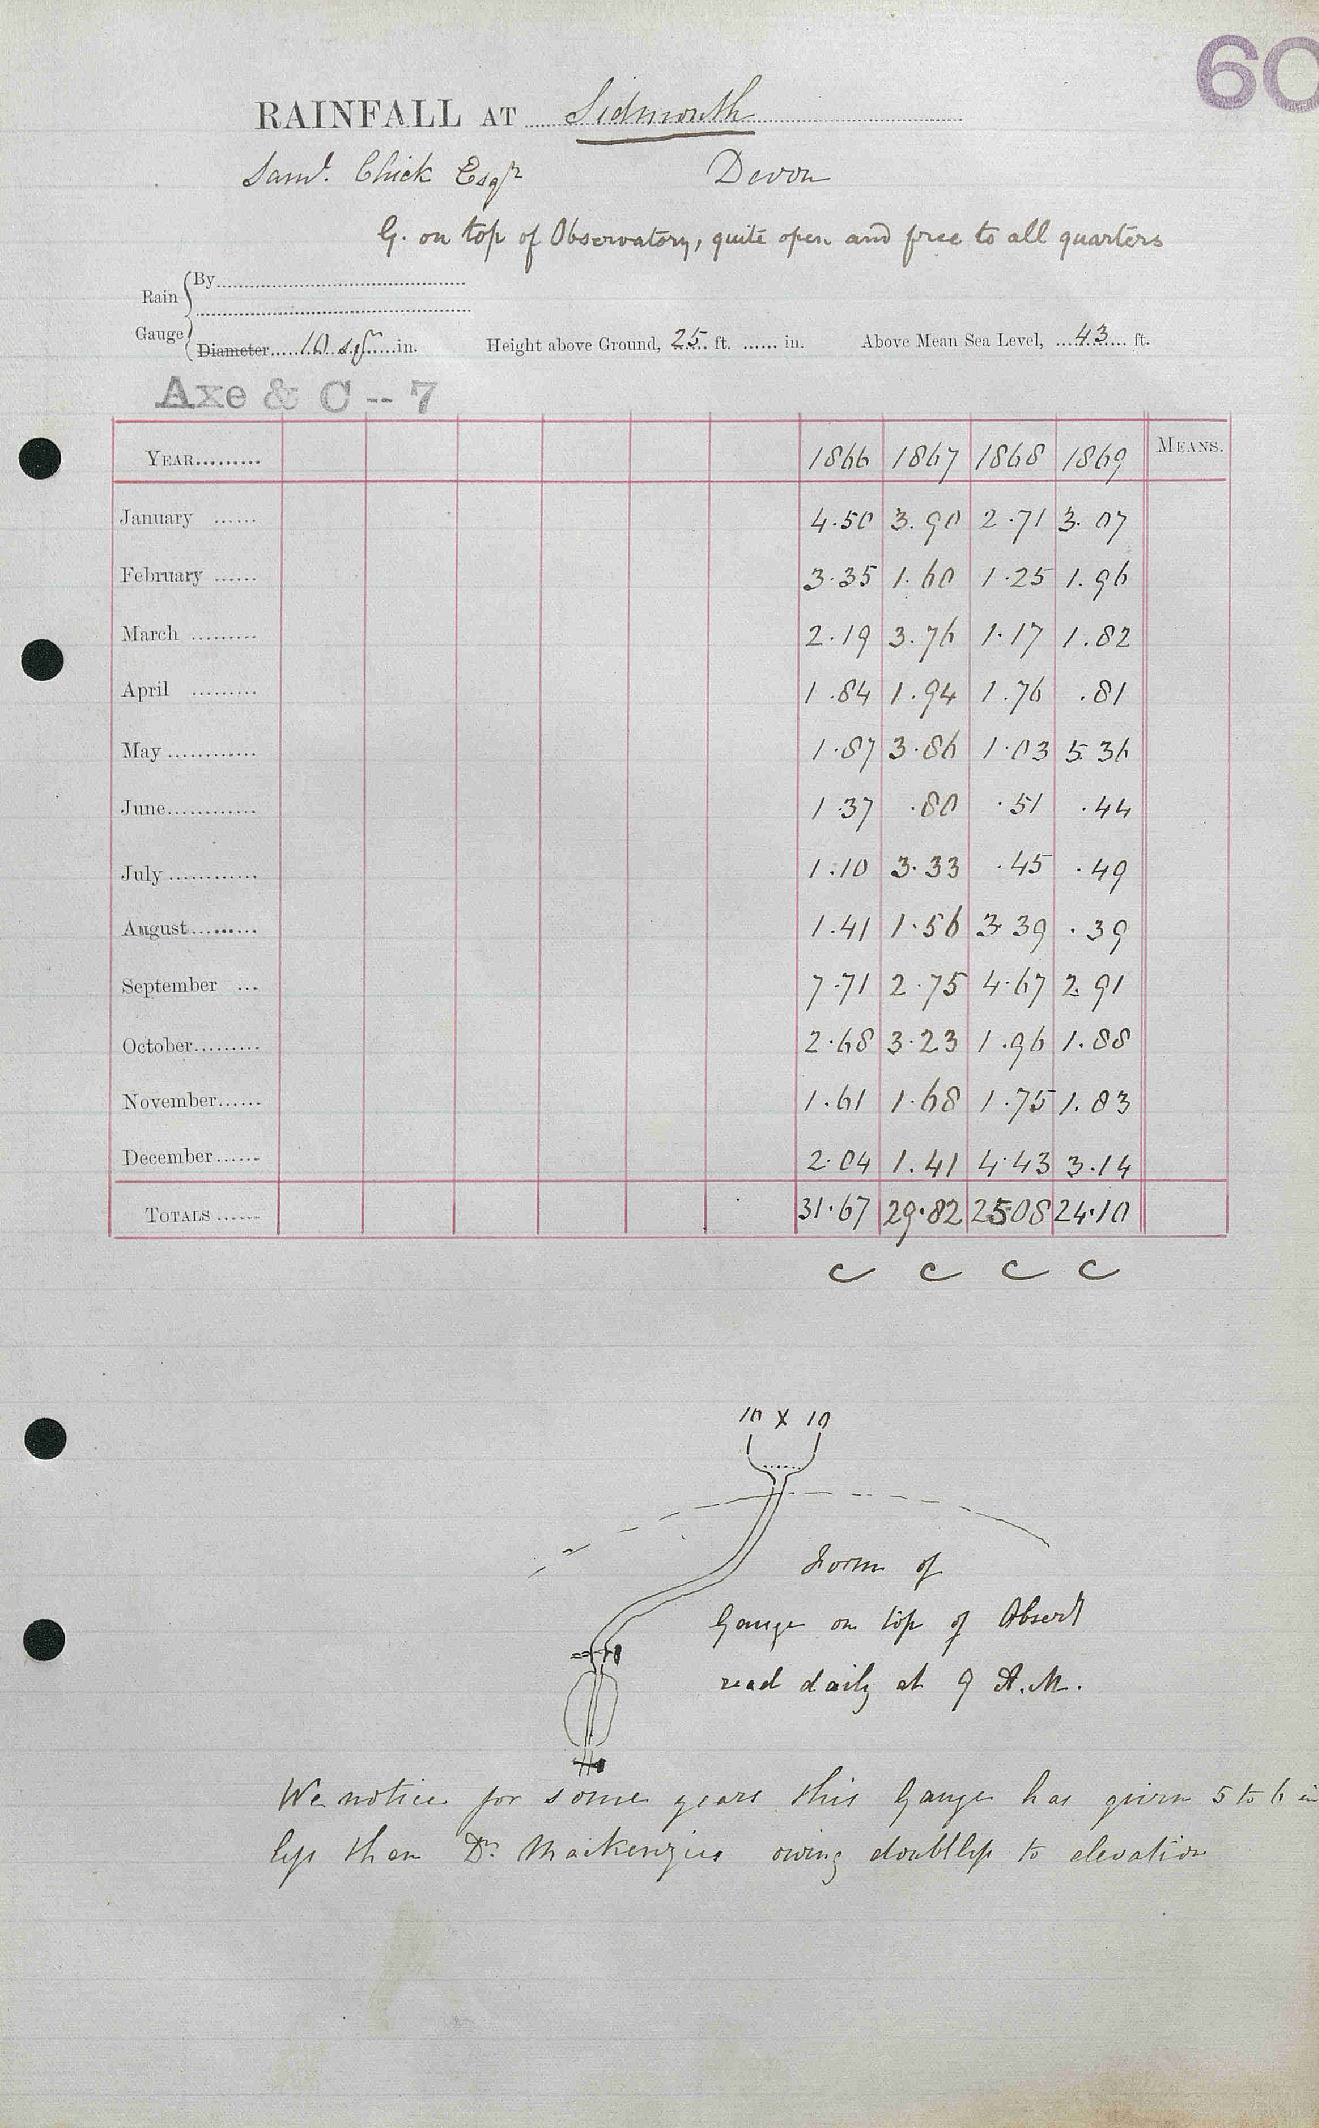 60
RAINFALL AT Sidmouth
Saml. Chick Esqr Devon
G. on top of Observatory, quite open and free to all quarters
Rain Gauge { By
Diameter 10 sqr in. Height above Ground, 25 ft. ...... in. Above Mean Sea Level, 43 ft.
Axe & C -- 7
YEAR......... 1866 1867 1868 1869 MEANS.
January ...... 4.50 3.90 2.71 3.07
February ...... 3.35 1.60 1.25 1.96
March ......... 2.19 3.76 1.17 1.82
April ......... 1.84 1.94 1.76 .81
May ............ 1.87 3.86 1.03 5.36
June............ 1.37 .80 .51 .44
July ............ 1.10 3.33 .45 .49
August.......... 1.41 1.56 3.39 .39
September ... 7.71 2.75 4.67 2.91
October......... 2.68 3.23 1.96 1.88
November...... 1.61 1.68 1.75 1.83
December...... 2.04 1.41 4.43 3.14
TOTALS ...... 31.67 29.82 25.08 24.10
C C C C
10 X 10
Form of
Gauge on top of Obsert
read daily at 9 A.M.
We notice for some years this Gauge has given 5 to 6 in
less than Dr. Mackenzies owing doubtless to elevation